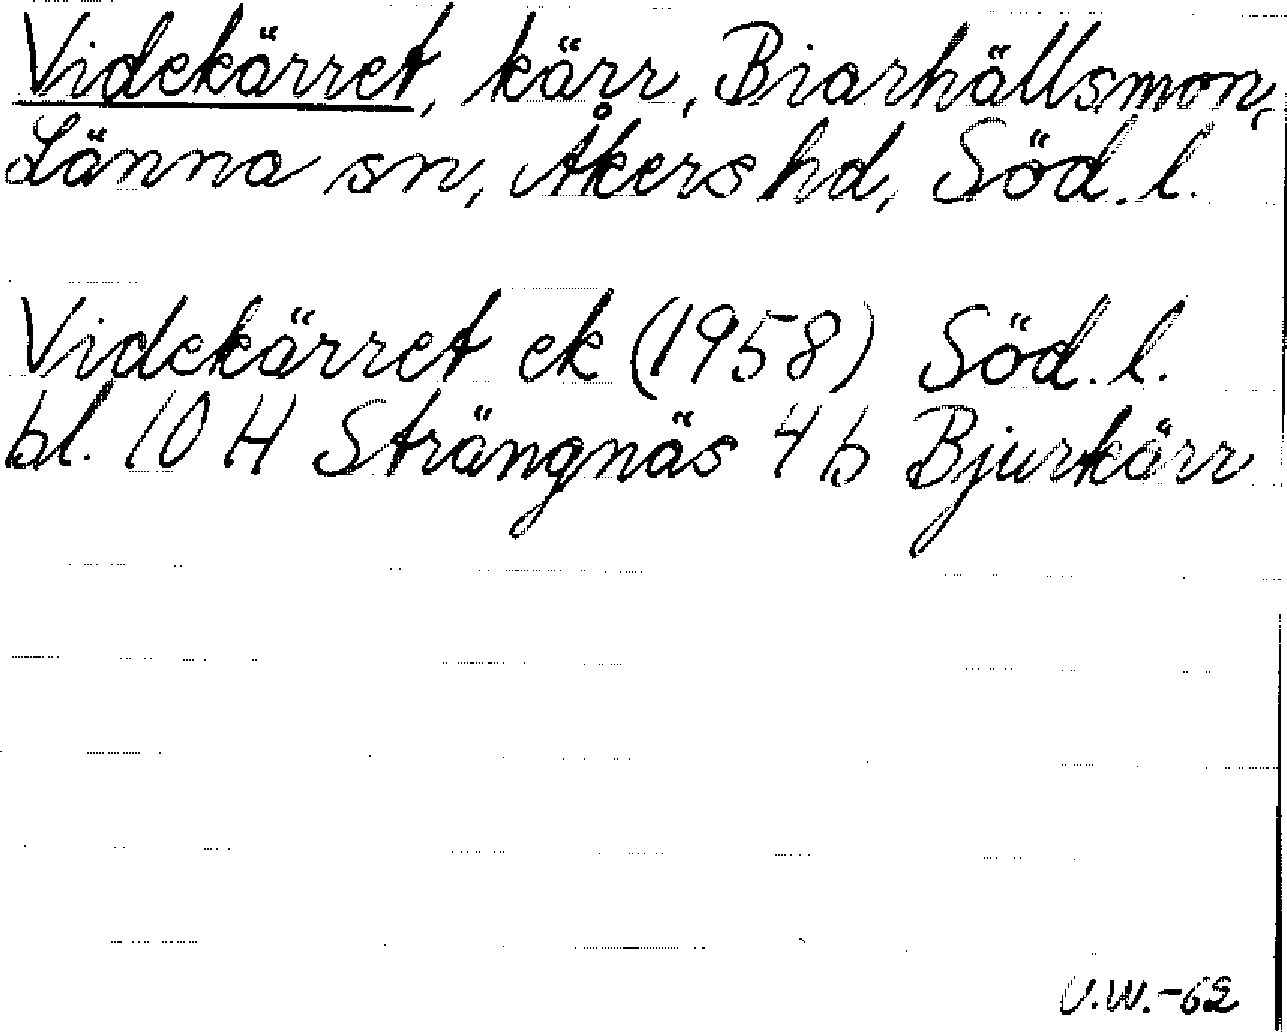 Videkärret, kärr, Biarhällsmon,
Länna sn, Åkers hd, Söd. l.
Videkärret ek (1958) Söd. l.
bl. 10 H Strängnäs 4 b Bjurkärr
U.W.-62